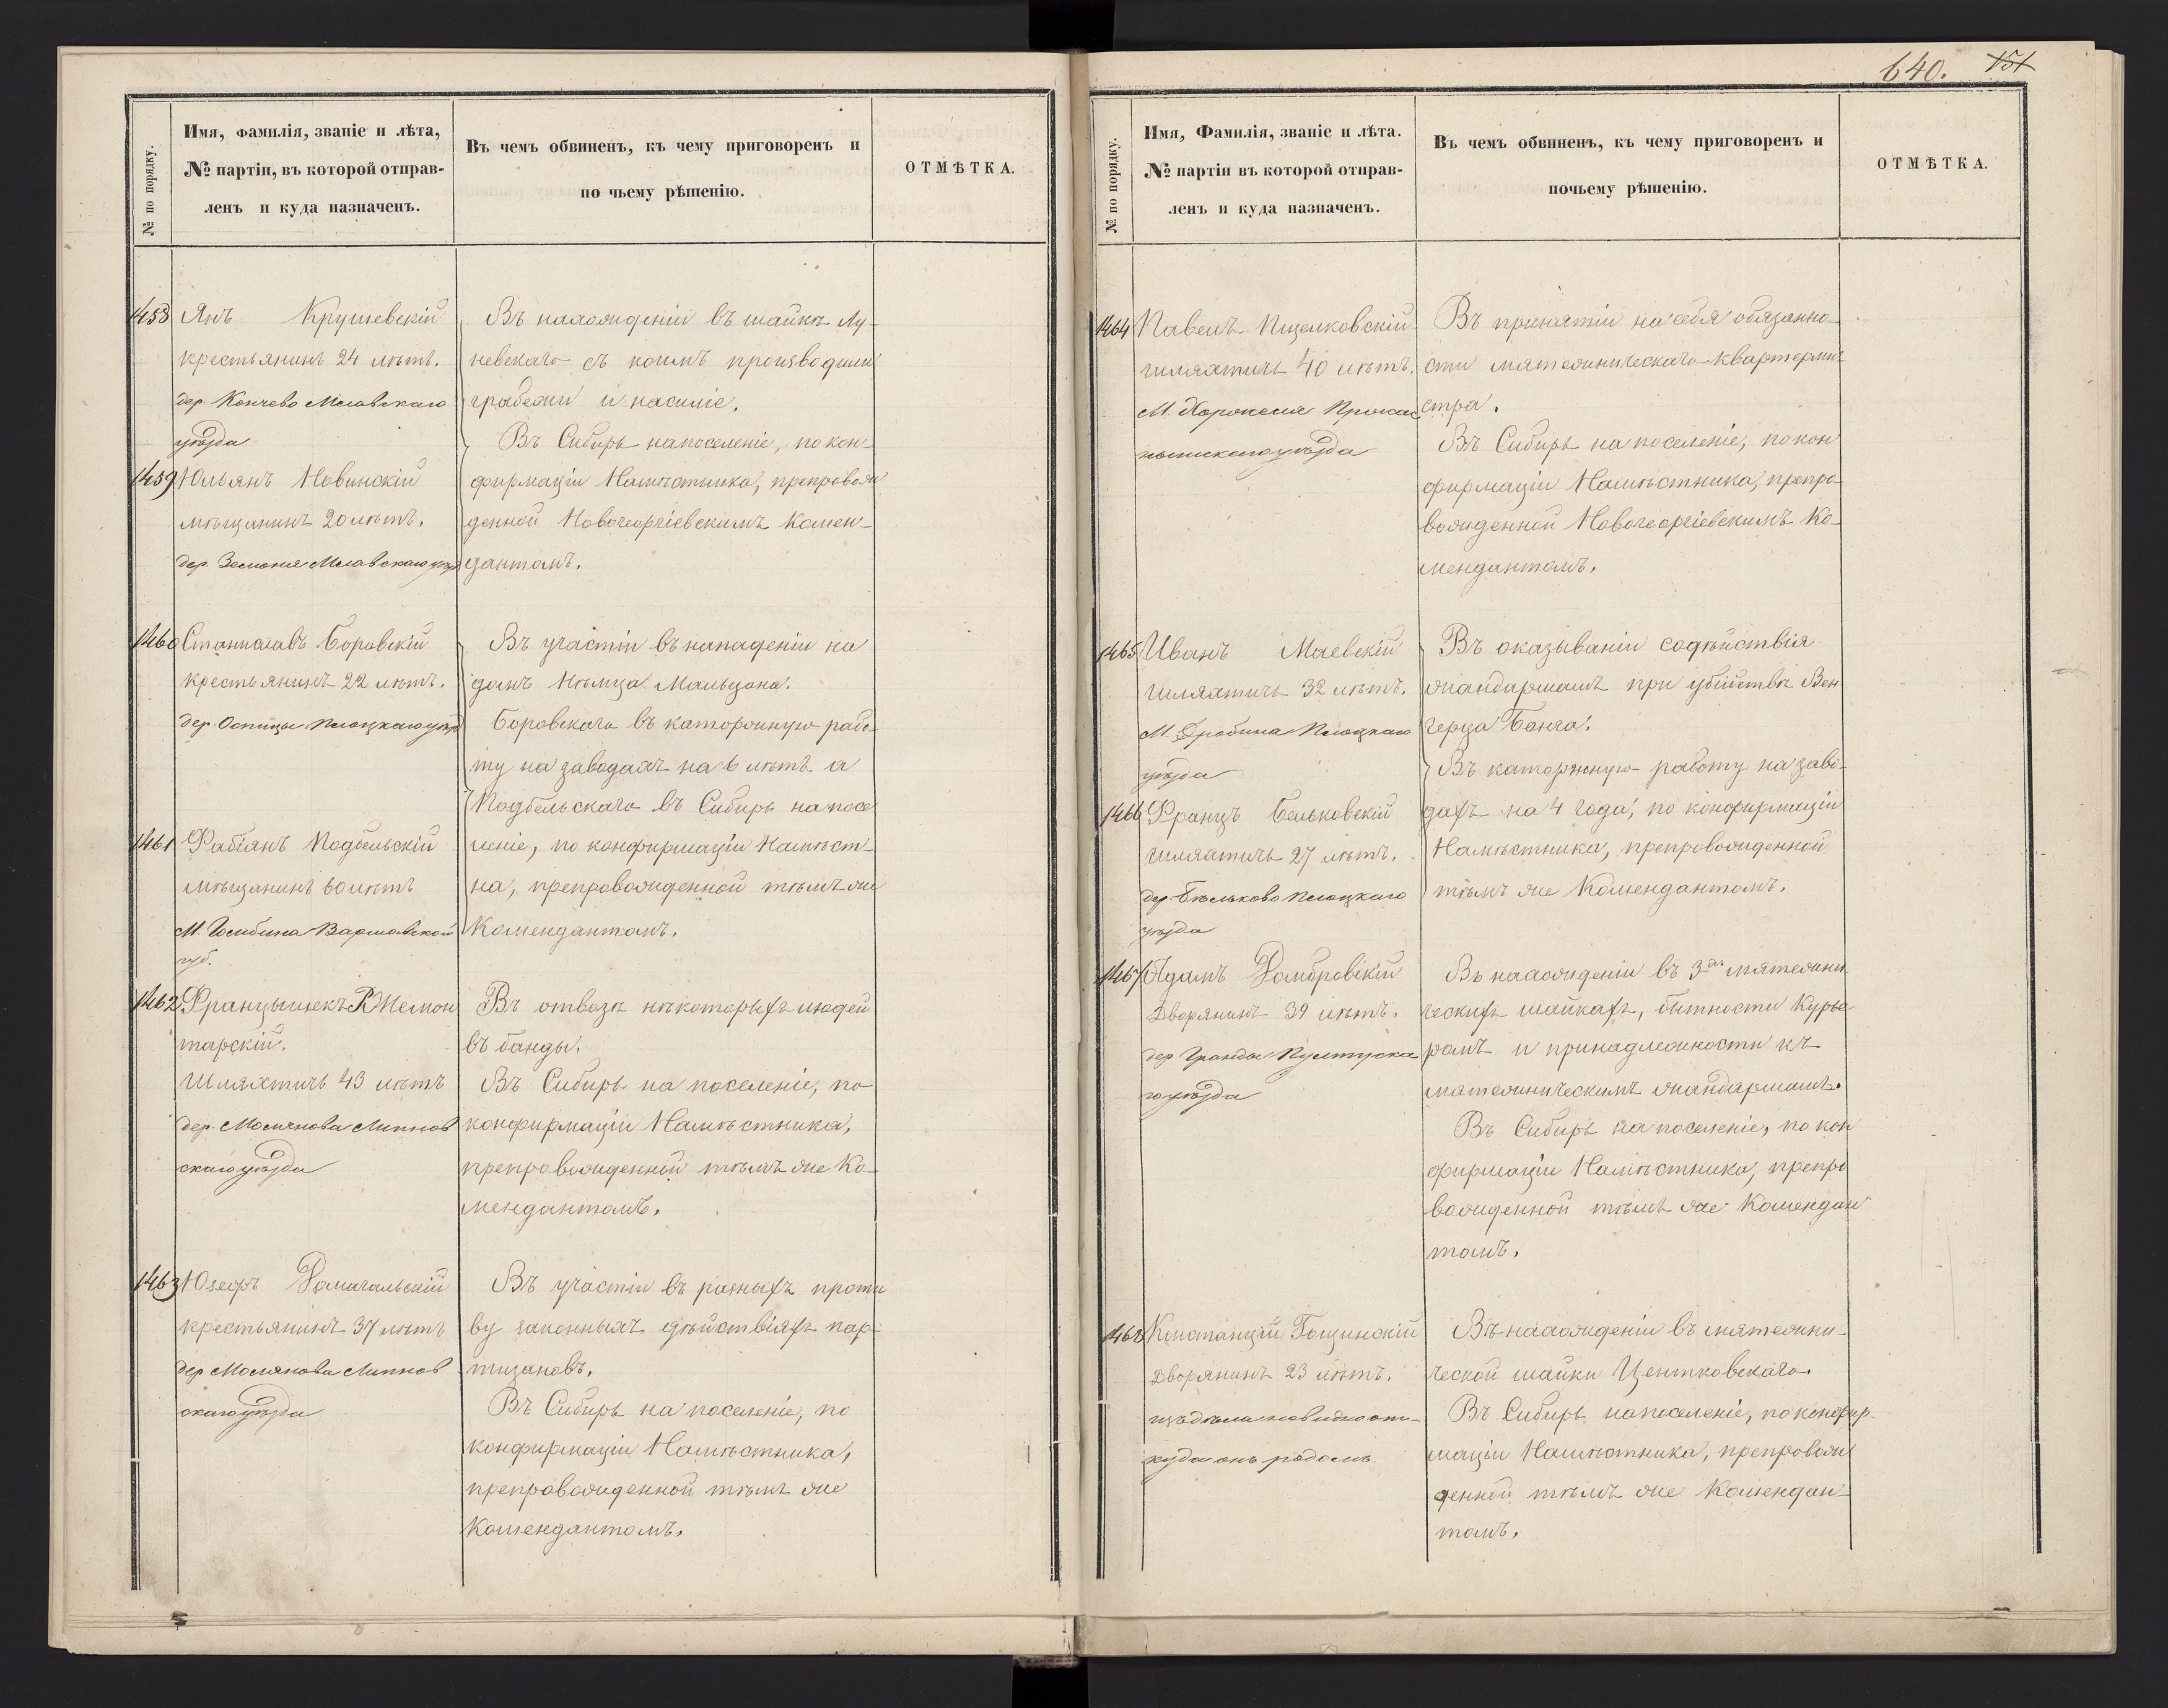 640. 151
№ по порядку.
Имя, фамилія, званіе и лѣта,
№ партіи, въ которой отправ-
ленъ и куда назначенъ.
Въ чемъ обвиненъ, къ чему приговоренъ и
по чьему рѣшенію.
ОТМѢТКА.
1458 Янъ Крушевскій
крестьянинъ 24 лѣтъ.
дер. Кончево Млавскаго
уѣзда
1459 Юльянъ Новинскій
мѣщанинъ 20 лѣтъ.
дер. Млавскаго уѣзд
Въ нахожденіи въ шайкѣ Лу-
невскаго съ коимъ производили
грабежи и насиліе.
Въ Сибирь на поселеніе, по кон-
фирмаціи Намѣстника, препровож
денной Новогеоргіевскимъ Комен-
дантомъ.
1460 Станиславъ Боровскій
крестьянинъ 22 лѣтъ.
дер. Осницы Плоцкаго уѣзд
1461 Фабіянъ Подбельскій
мѣщанинъ 60 лѣтъ
М. Гомбина Варшавской
губ.
Въ участіи въ нападеніи на
домъ Нѣмца Мальцана.
Боровскаго въ каторжную рабо-
ту на заводахъ на 6 лѣтъ. а
Подбельскаго въ Сибирь на посе
леніе, по конфирмаціи Намѣст-
на, препровожденной тѣмъ же
Комендантомъ.
1462 Францышекъ РЖемон
тарскій.
Шляхтичъ 43 лѣтъ
дер. Липнов
скаго уѣзда
Въ отвозѣ нѣкоторыхъ людей
въ банды.
Въ Сибирь на поселеніе, по
конфирмаціи Намѣстника,
препровожденной тѣмъ же Ко-
мендантомъ.
1463 Юзефъ Домагальскій
крестьянинъ 37 лѣтъ
дер Липнов
скаго уѣзда
Въ участіи въ разныхъ проти
ву законныхъ дѣйствіяхъ пар-
тизановъ.
Въ Сибирь на поселеніе, по
конфирмаціи Намѣстника,
препровожденной тѣмъ же
Комендантомъ.
№ по порядку.
Имя, Фамилія, званіе и лѣта.
№ партіи въ которой отправ-
ленъ и куда назначенъ.
Въ чемъ обвиненъ, къ чему приговоренъ и
почьему рѣшенію.
ОТМѢТКА.
1464 Павелъ Пщелковскій
шляхтичъ 40 лѣтъ.
М. Хоржеля Пржас
нышскаго уѣзда
Въ принятіи на себя обязанно-
сти мятежническаго квартерми
стра.
Въ Сибирь на поселеніе, по кон
фирмаціи Намѣстника, препро-
вожденной Новогеоргіевскимъ Ко-
мендантомъ.
1465 Иванъ Маевскій
шляхтичъ 32 лѣтъ.
М. Дробина Плоцкаго
уѣзда
1466 Францъ Бельковскій
шляхтичъ 27 лѣтъ.
дер. Бѣльково Плоцкаго
уѣзда
Въ оказываніи содѣйствія
жандармамъ при убійствѣ Вен
герца Банга.
Въ каторжную работу на заво-
дахъ на 4 года, по конфирмаціи
Намѣстника, препровожденной
тѣмъ же Комендантомъ.
1467 Адамъ Домбровскій
Дворянинъ 39 лѣтъ.
дер Гронды Пултуска
го уѣзда
Въ нахожденіи въ 3-хъ мятежни
ческихъ шайкахъ, бытности Курье
ромъ и принадлежности къ
мятежническимъ жандармамъ.
Въ Сибирь на поселеніе, по кон
фирмаціи Намѣстника, препро
вожденной тѣмъ же Комендан
томъ.
1468 Констанцій Гощинскій
Дворянинъ 23 лѣтъ.
изъ дѣла не видно от-
куда онъ родомъ.
Въ нахожденіи въ мятежни-
ческой шайки Центковскаго.
Въ Сибирь на поселеніе, по конфир-
маціи Намѣстника, препровож
денной тѣмъ же Комендан-
томъ.